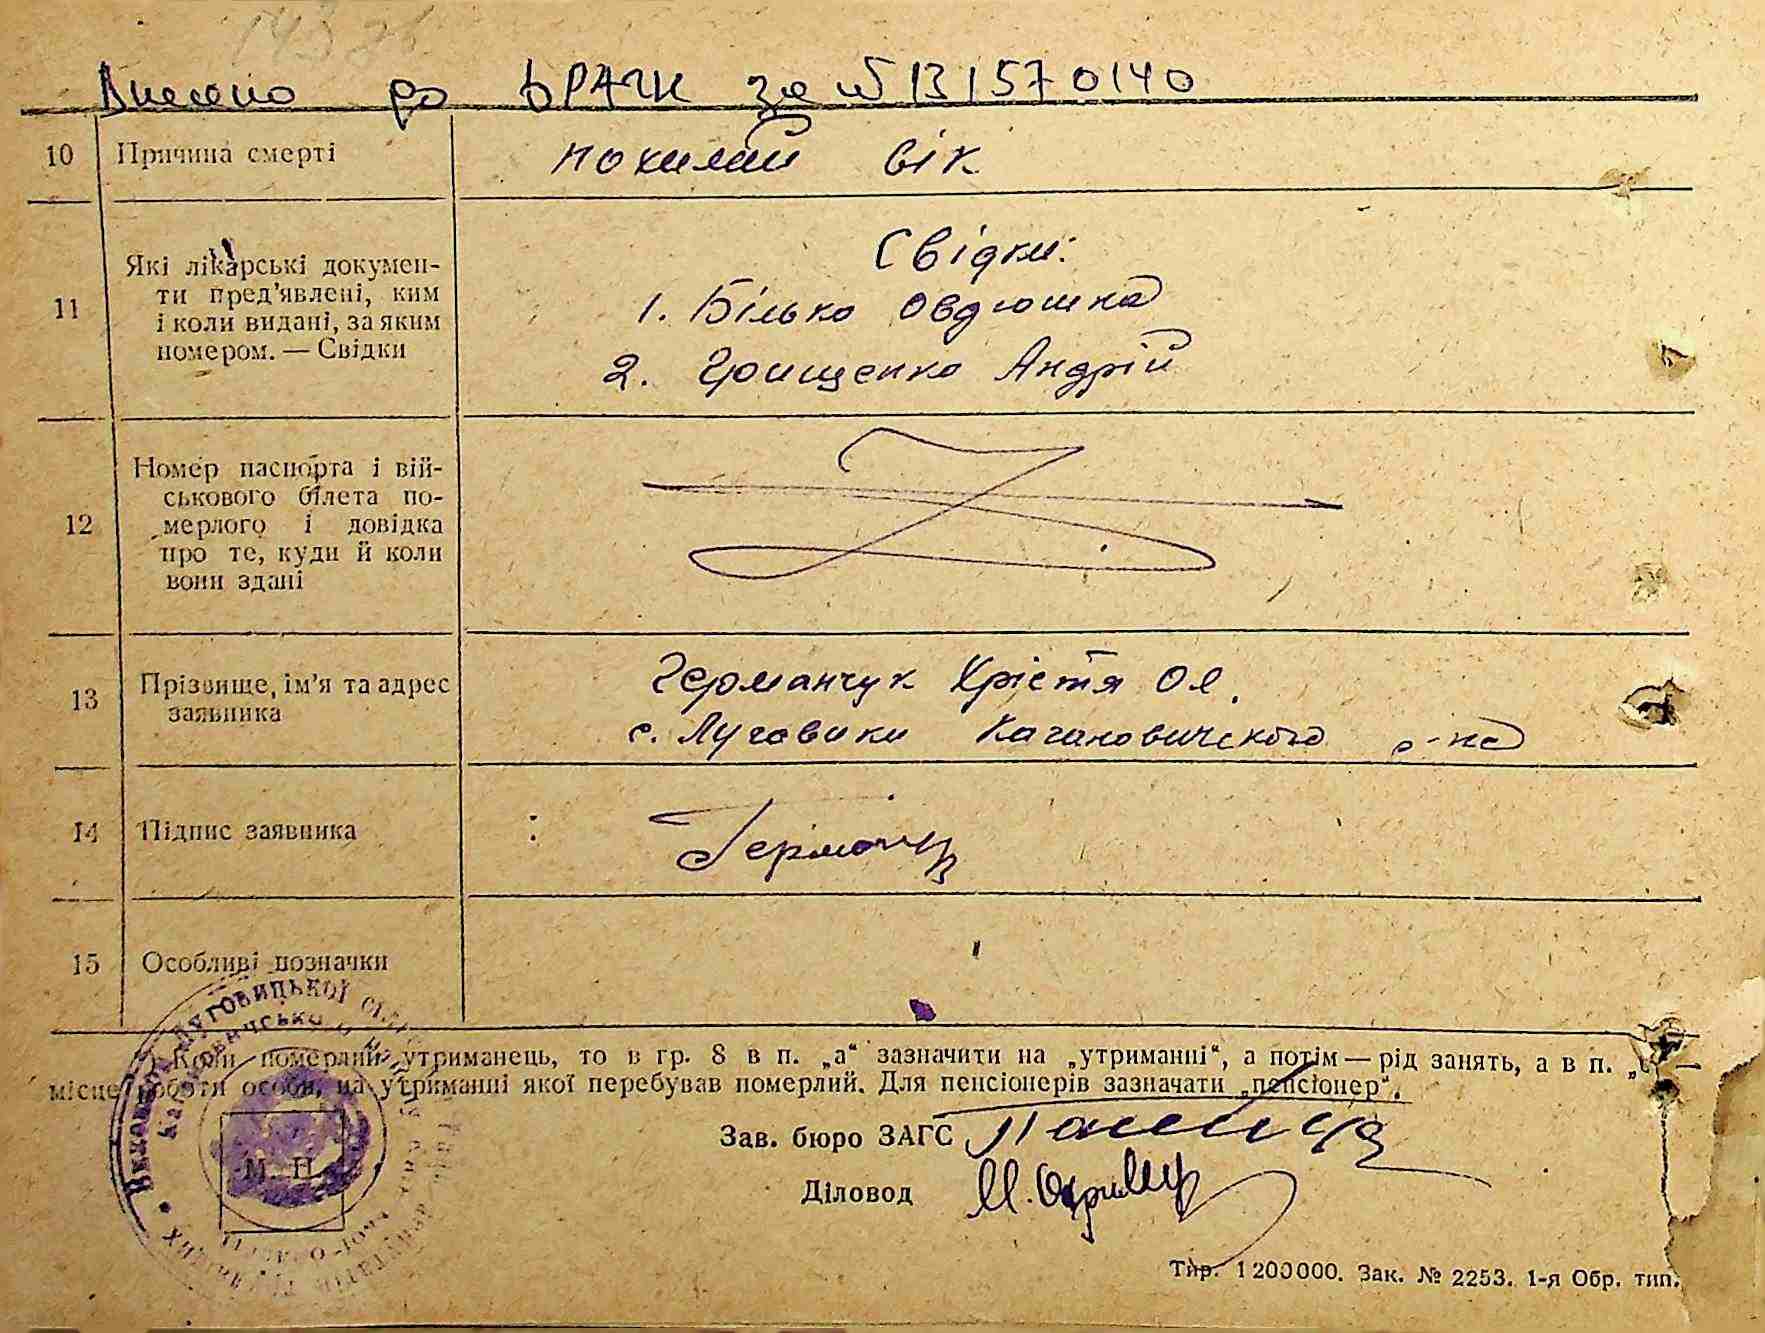 Внесено до ДРАЦС за № 131570140
10 Причина смерті
похилий вік
11 Які лікарські документи пред'явлені, ким і коли видані, за яким номером. — Свідки
Які лікарські докумен-
ти пред'явлені, ким
і коли видані, за яким
номером. — Свідки
Свідки:
1. Білько Овдюшка
2. Грищенко Андрій
12
Номер паспорта і вій-
ськового білета по-
мерлого і довідка
про те, куди й коли
вони здані
13
Прізвище, ім'я та адрес
заявника
Германчук Хрістя Ол.
с. Луговики Кагановичского р-на
14 Підпис заявника
15 Особливі позначки
Коли померлий утриманець, то в гр. 8 в п. „а“ зазначити на „утриманні“, а потім — рід занять, а в п. —
місце роботи особи, на утриманні якої перебував померлий. Для пенсіонерів зазначати „пенсіонер“.
Зав. бюро ЗАГС
Діловод
М. П.
Тир. 1200000. Зак. № 2253. 1-я Обр. тип.